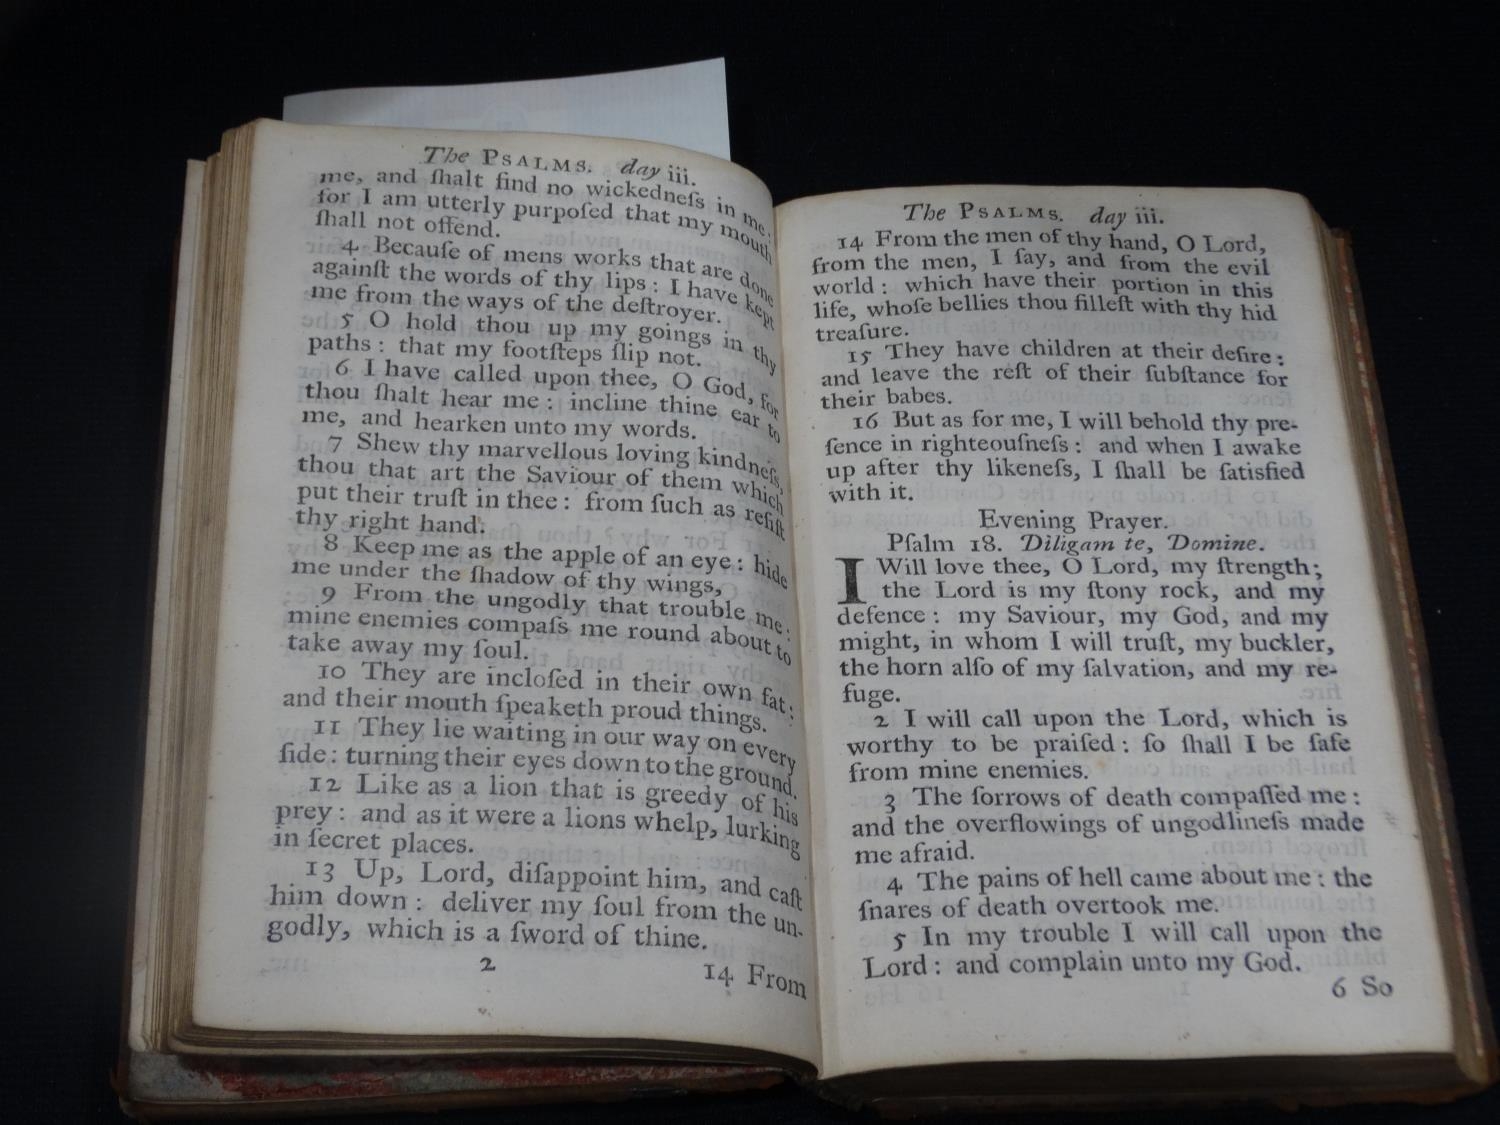 The PSALMS. day iii.
me, and ſhalt find no wickedneſs in me:
for I am utterly purpoſed that my mouth
ſhall not offend.
4 Becauſe of mens works that are done
againſt the words of thy lips: I have kept
me from the ways of the deſtroyer.
5 O hold thou up my goings in thy
paths: that my footſteps ſlip not.
6 I have called upon thee, O God, for
thou ſhalt hear me: incline thine ear to
me, and hearken unto my words.
7 Shew thy marvellous loving kindneſs,
thou that art the Saviour of them which
put their truſt in thee: from ſuch as reſiſt
thy right hand.
8 Keep me as the apple of an eye: hide
me under the ſhadow of thy wings,
9 From the ungodly that trouble me:
mine enemies compaſs me round about to
take away my ſoul.
10 They are incloſed in their own fat:
and their mouth ſpeaketh proud things.
11 They lie waiting in our way on every
ſide: turning their eyes down to the ground.
12 Like as a lion that is greedy of his
prey: and as it were a lions whelp, lurking
in ſecret places.
13 Up, Lord, diſappoint him, and caſt
him down: deliver my ſoul from the un-
godly, which is a ſword of thine.
2 14 From
The PSALMS. day iii.
14 From the men of thy hand, O Lord,
from the men, I ſay, and from the evil
world: which have their portion in this
life, whoſe bellies thou filleſt with thy hid
treaſure.
15 They have children at their deſire:
and leave the reſt of their ſubſtance for
their babes.
16 But as for me, I will behold thy pre-
ſence in righteouſneſs: and when I awake
up after thy likeneſs, I ſhall be ſatisfied
with it.
Evening Prayer.
Pſalm 18. Diligam te, Domine.
I Will love thee, O Lord, my ſtrength;
the Lord is my ſtony rock, and my
defence: my Saviour, my God, and my
might, in whom I will truſt, my buckler,
the horn alſo of my ſalvation, and my re-
fuge.
2 I will call upon the Lord, which is
worthy to be praiſed: ſo ſhall I be ſafe
from mine enemies.
3 The ſorrows of death compaſſed me:
and the overflowings of ungodlineſs made
me afraid.
4 The pains of hell came about me: the
ſnares of death overtook me.
5 In my trouble I will call upon the
Lord: and complain unto my God.
6 So